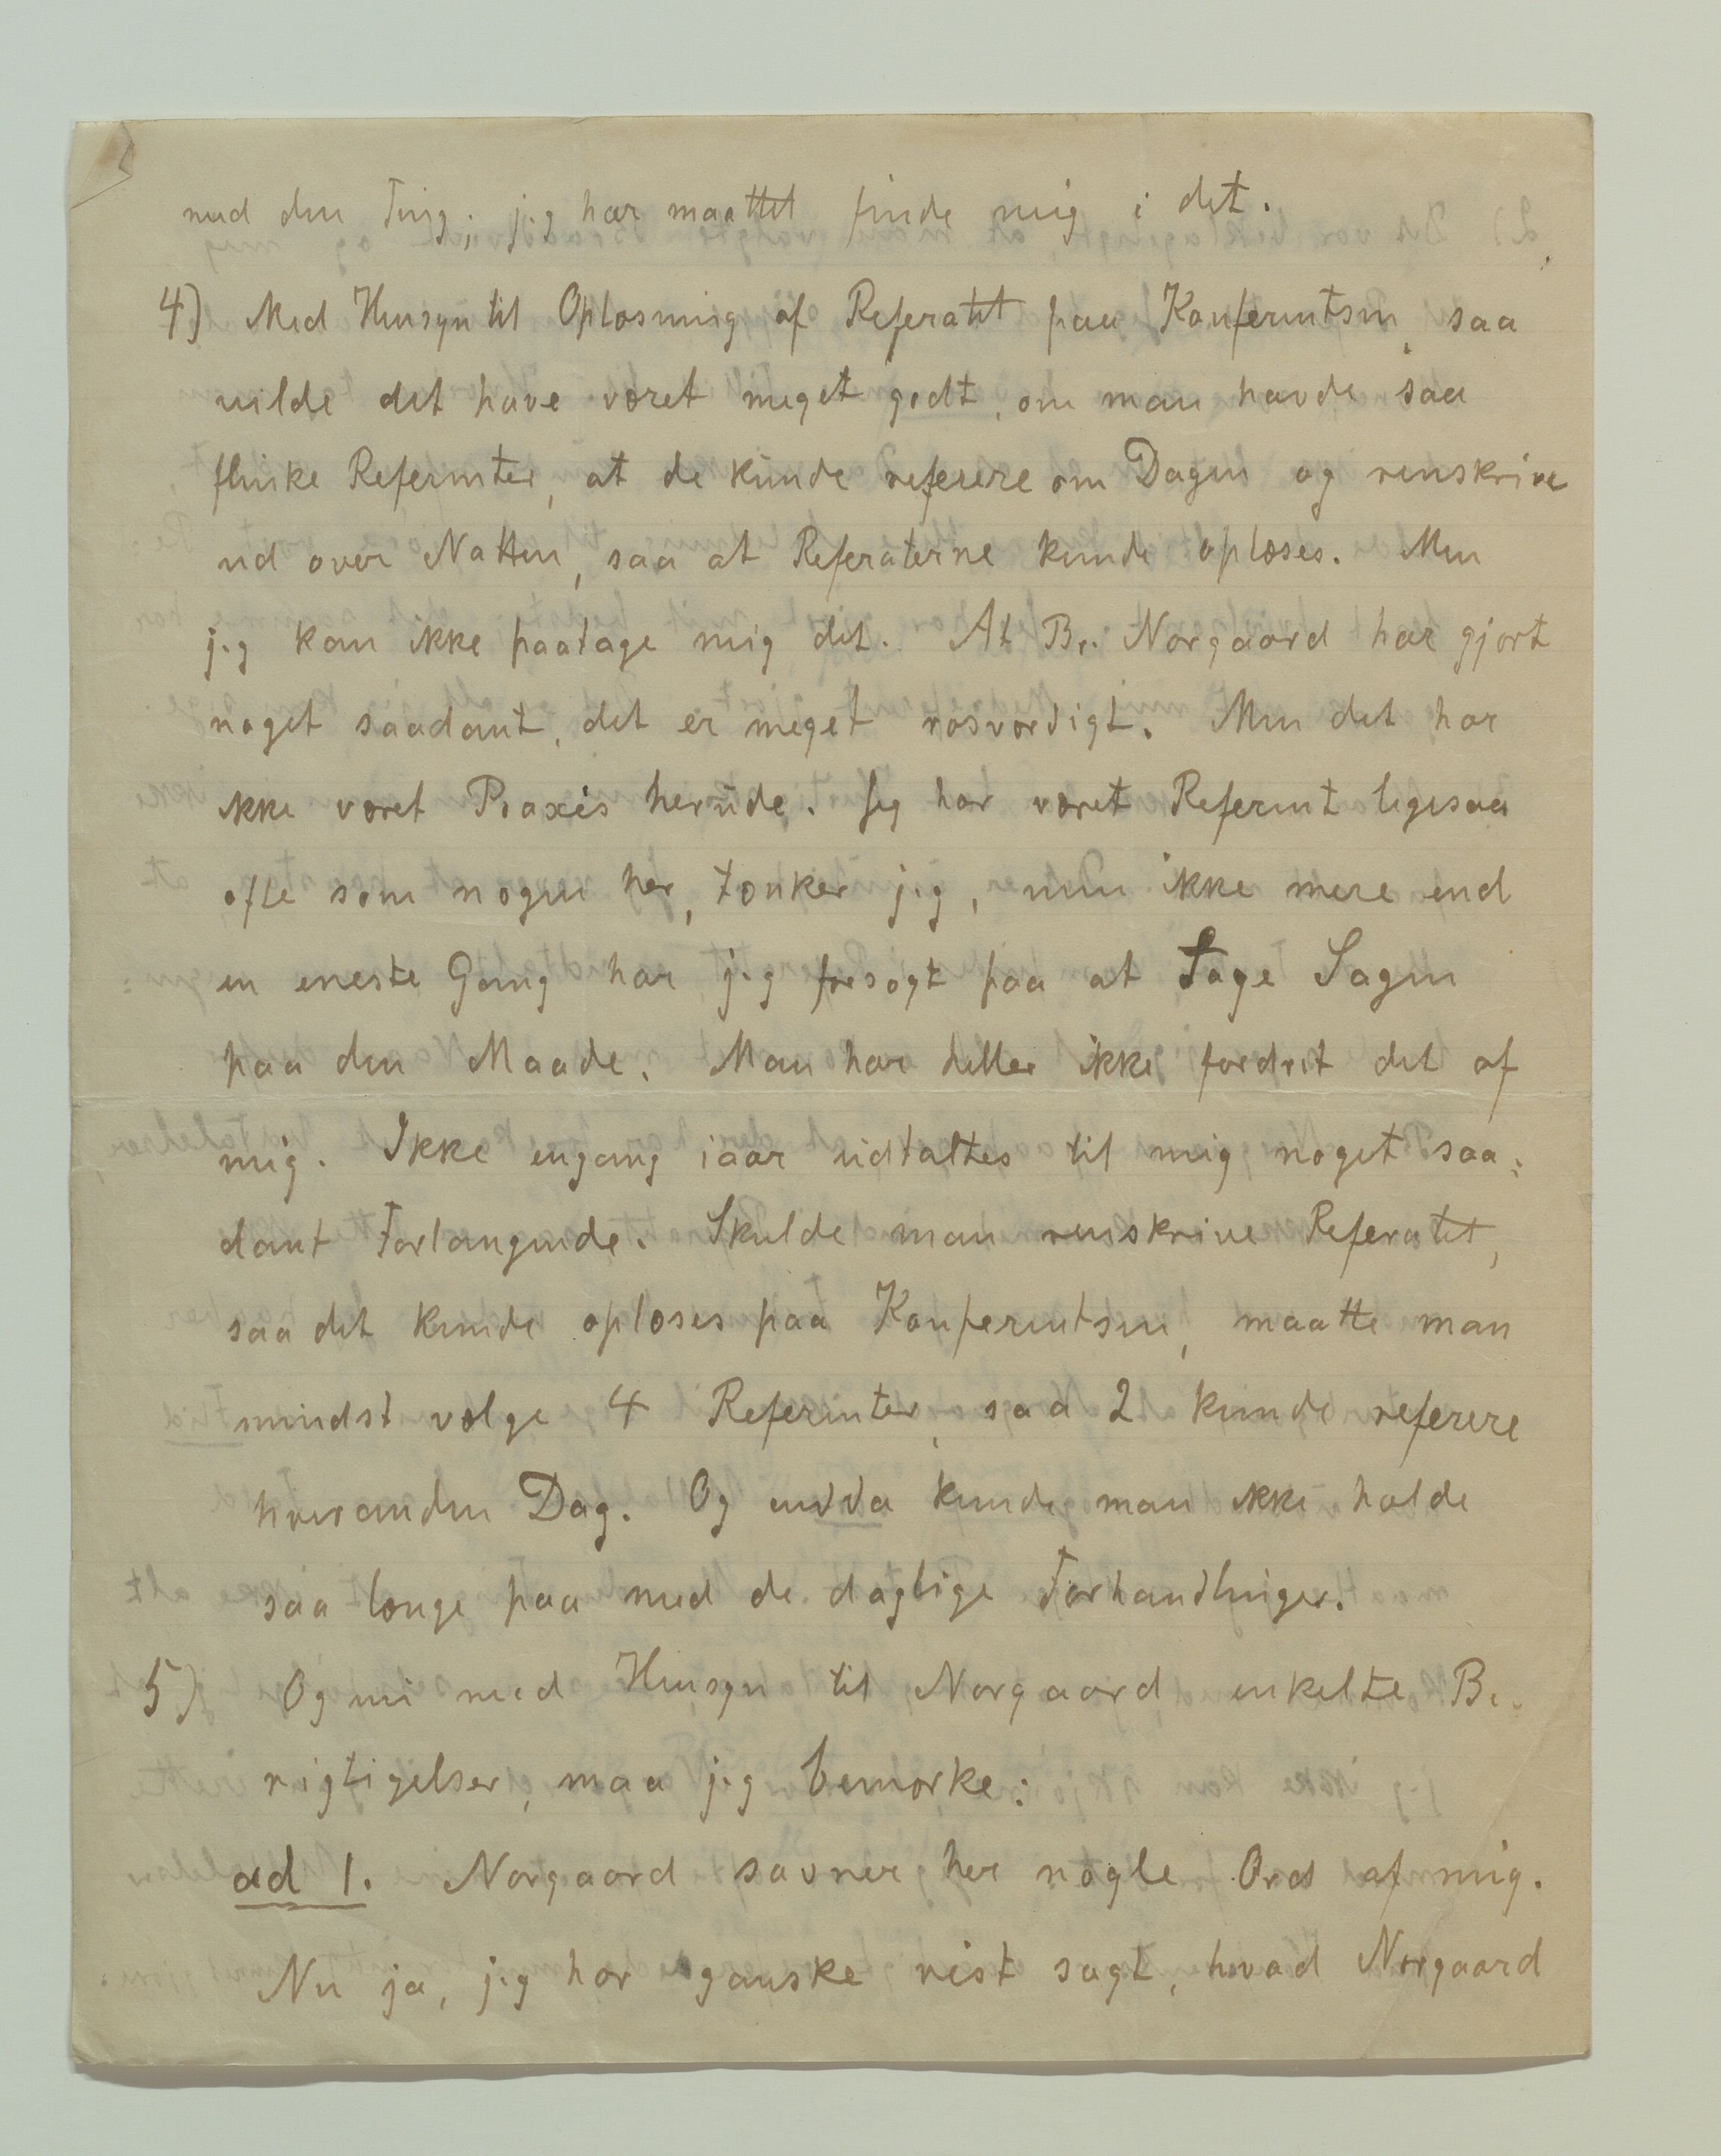 med den Ting; jeg har maattet finde mig i det.
4) Med Hensyn til Oplæsning af Referatet paa Konferentsen, saa
vilde det have været meget godt, om man havde saa
flinke Referenter, at de kunde referere om Dagen og renskrive
ud over Natten, saa at Referaterne kunde oplæses. Men
jeg kan ikke paatage mig det. At Br. Nørgaard har gjort
noget saadant, det er meget rosværdigt. Men det har
ikke været Praxis herude. Jeg har været Referent ligesaa
ofte som nogen her, tænker jeg, men ikke mere end
en eneste Gang har jeg forsøgt paa at tage Sagen
paa den Maade. Man har heller ikke fordret det af
mig. Ikke engang iaar udtaltes til mig noget saa-
dant Forlangende. Skulde man renskrive Referatet,
saa det kunde oplæses paa Konferentsen, maatte man
mindst vælge 4 Referenter, saa 2 kunde referere
hveranden Dag. Og endda kunde man ikke holde
saa længe paa med de daglige Forhandlinger.
5) Og nu med Hensyn til Nørgaards enkelte Be-
rigtigelser, maa jeg bemærke:
ad 1. Nørgaard savner her nogle Ord af mig.
Nu ja, jeg har ganske vist sagt, hvad Nørgaard